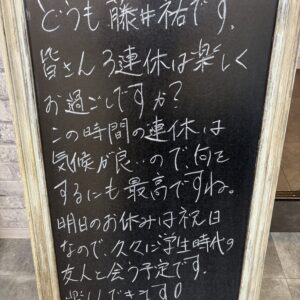 どうも 藤井祐です。
皆さん3連休は楽しく
お過ごしですか?
この時間の連休は
気候が良いので、何を
するにも最高ですね。
明日のお休みは祝日
なので、久々に学生時代の
友人と会う予定です。
楽しんできます!